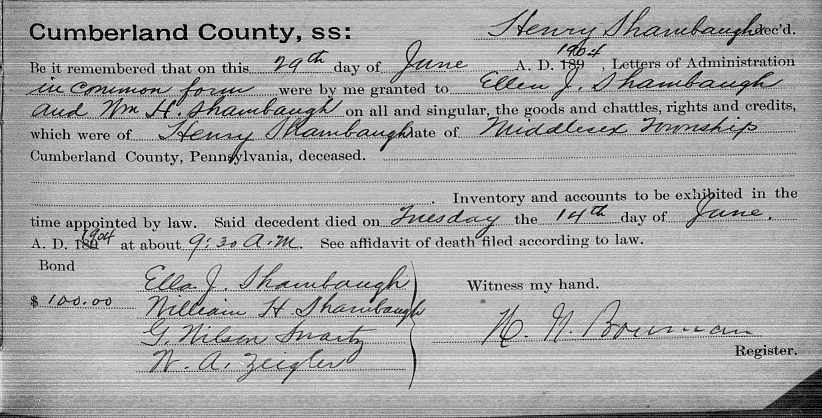 Cumberland County, ss: Henry Shambaugh dec'd.
Be it remembered that on this 29th day of June A. D. 1904, Letters of Administration
in common form were by me granted to Ellen J. Shambaugh
and Wm H. Shambaugh on all and singular, the goods and chattles, rights and credits,
which were of Henry Shambaugh late of Middlesex Township
Cumberland County, Pennsylvania, deceased.
Inventory and accounts to be exhibited in the
time appointed by law. Said decedent died on Tuesday the 14th day of June.
A. D. 1904 at about 9:30 A.M. See affidavit of death filed according to law.
Bond
$ 100.00
Ella J. Shambaugh
William H. Shambaugh
G. Wilson Swartz
W. A. Zeigler
Witness my hand.
Bowman
Register.